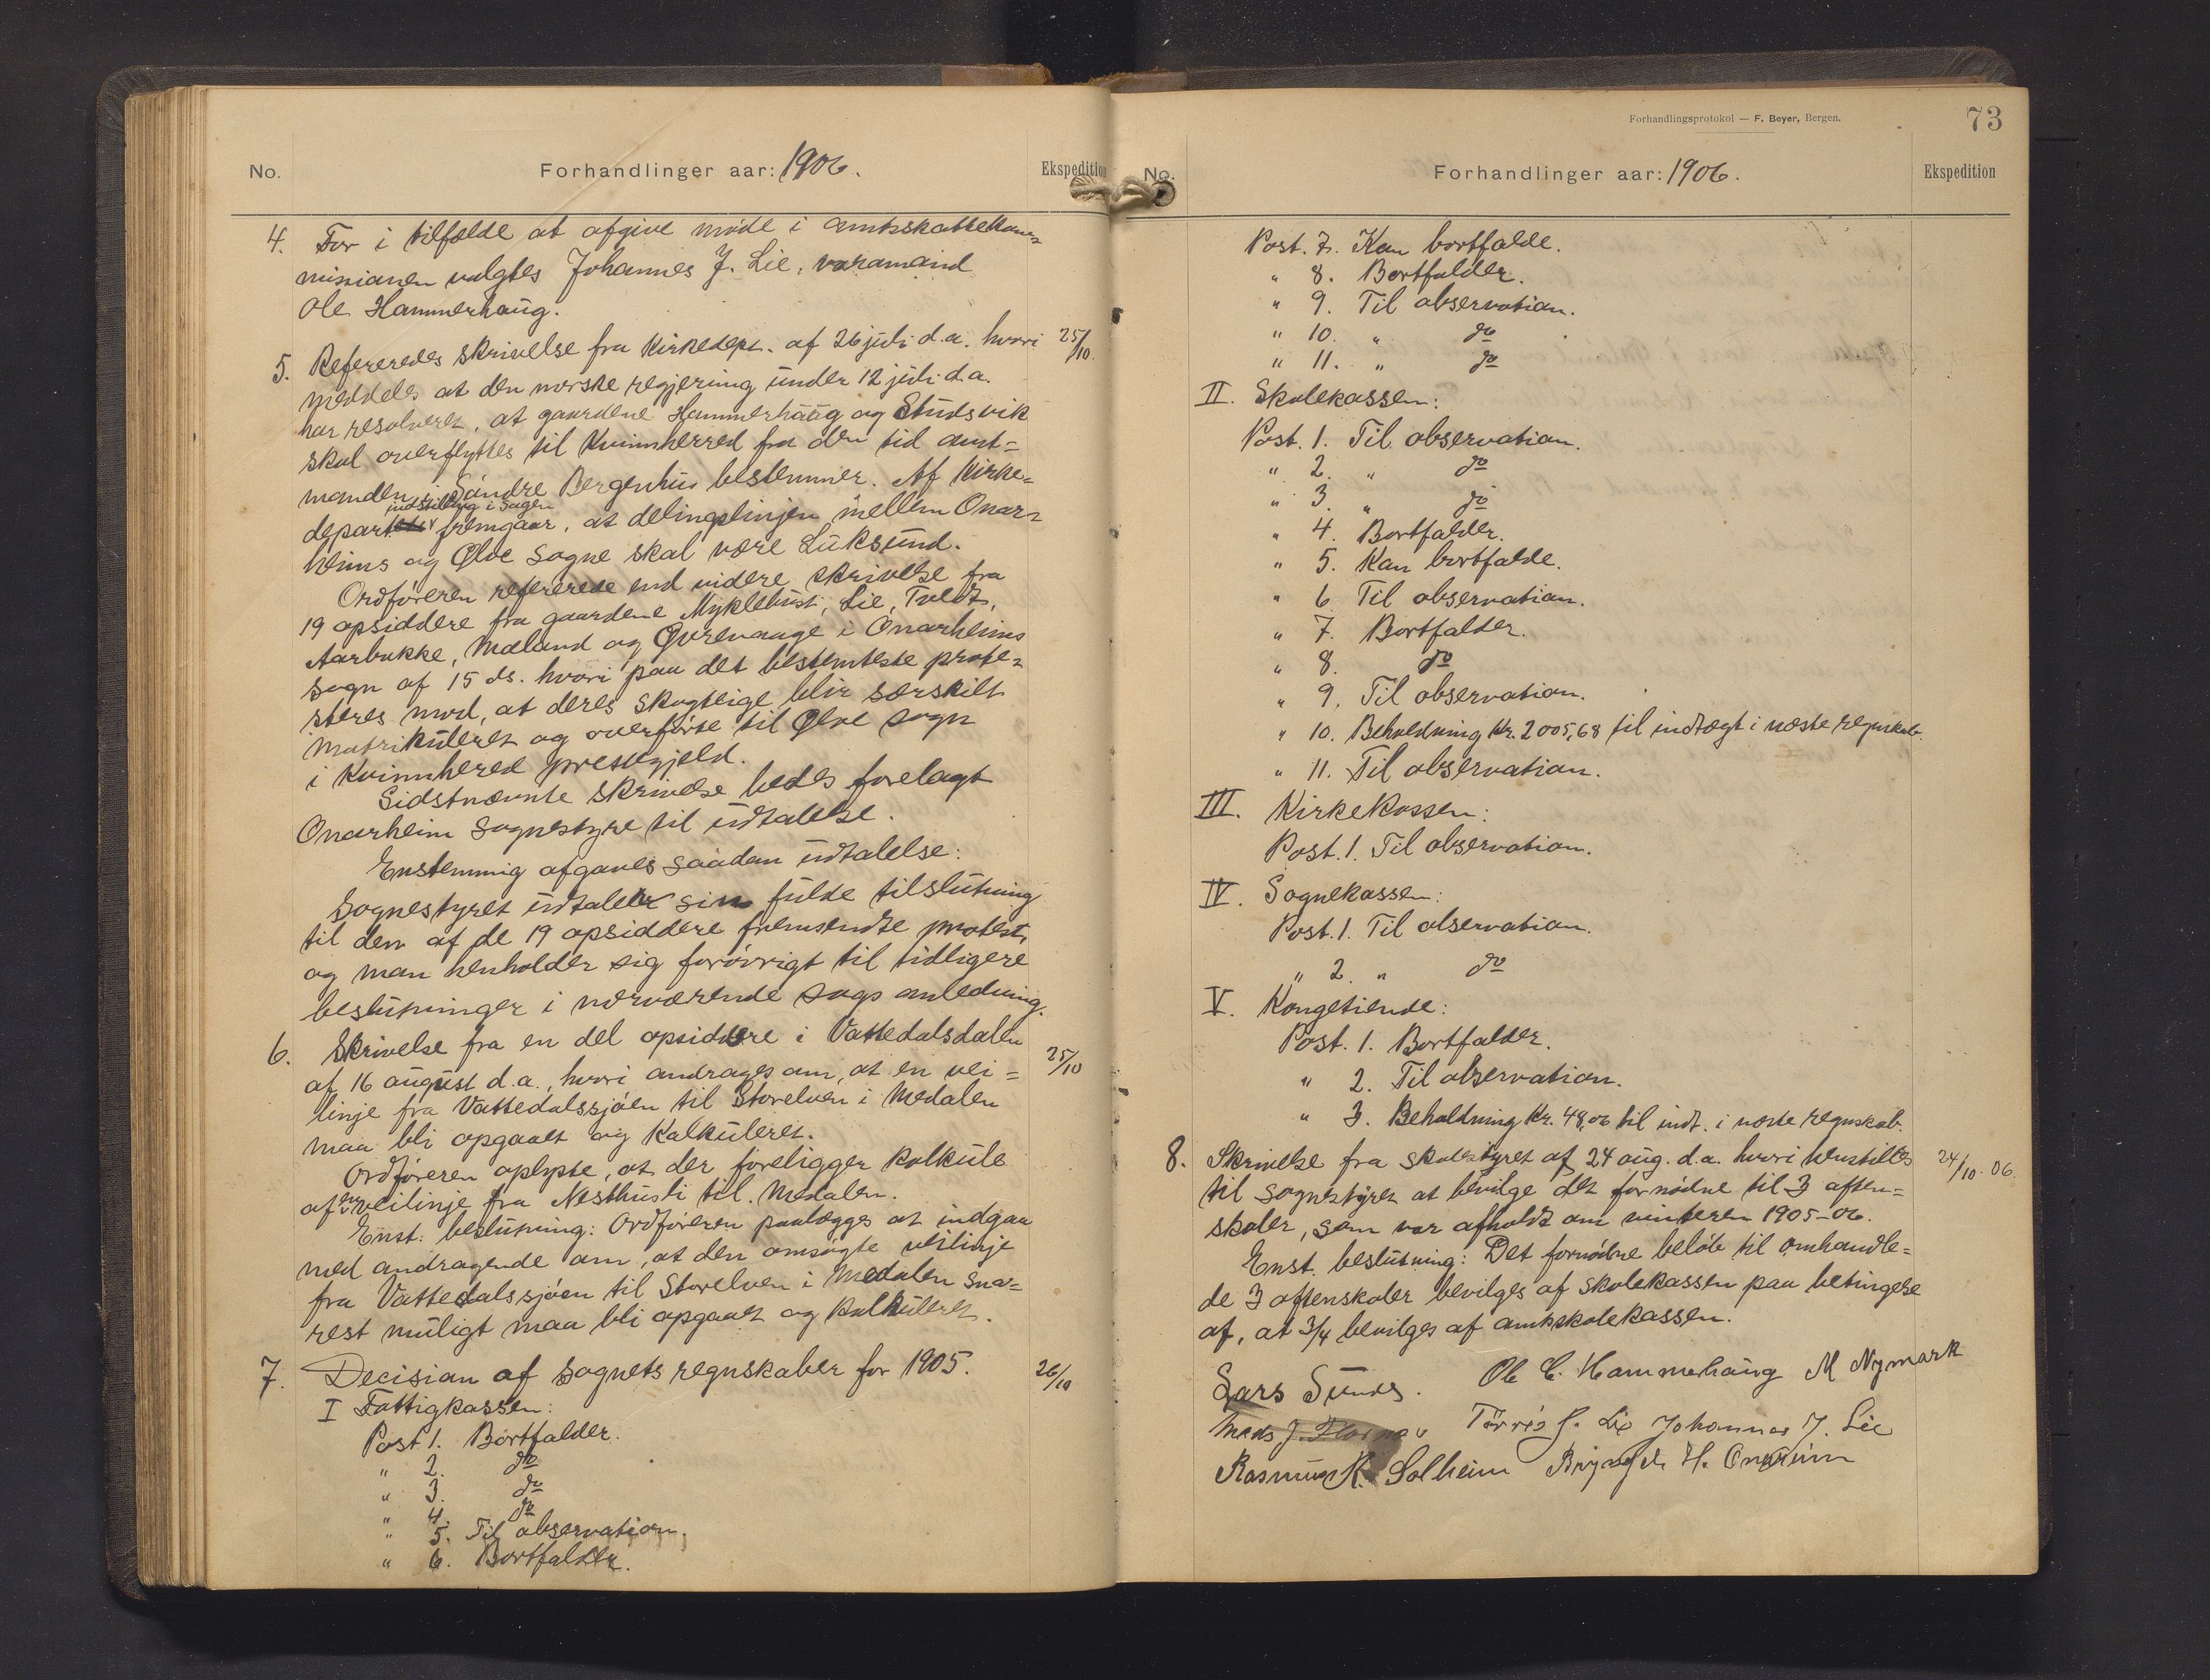 No. Forhandlinger aar: 1906. Ekspedition
4. For i tilfælde at afgive møde i amtsskattekom-
missionen valgtes Johannes J. Lie, varamand
Ole Hammerhaug.
5. Refereredes skrivelse fra Kirkedept. af 26 juli d.a. hvori 25/10.
meddeles at den norske regjering under 12 juli d.a.
har resolveret, at gaardene Hammerhaug og Studsvik
skal overflyttes til Kvinnherred fra den tid amt=
manden i Søndre Bergenhus bestemmer. Af Kirke=
indstilling i sagen
depart. fremgaar, at delingslinjen mellem Onar=
heims og Ølve sogne skal være Luksund.
Ordføreren refererede end videre skrivelse fra
19 opsiddere fra gaardene Myklebust, Lie, Tvedt,
Aarbakke, Mæland og Øvrevaage i Onarheims
sogn af 15 ds. hvori paa det bestemteste prote=
steres mod, at deres skogteige blir særskilt
matrikuleret og overførte til Ølve sogn
i Kvinnhered prestegjeld.
Sidstnævnte skrivelse bedes forelagt
Onarheim sognestyre til udtalelse.
Enstemmig afgaves saadan udtalelse:
Sognestyret udtaler sin fulde tilslutning
til den af de 19 opsiddere fremsendte protest,
og man henholder sig forøvrigt til tidligere
beslutninger i nærværende sags anledning.
6. Skrivelse fra en del opsiddere i Vattedalsdalen
af 16 august d.a., hvori andrages om, at en vei= 25/10
linje fra Vattedalssjøen til Storelven i Medalen
maa bli opgaaet og kalkuleret.
Ordføreren oplyste, at der foreligger kalkule
af en veilinje fra Nesthusli til Medalen.
Enst. beslutning: Ordføreren paalægges at indgaa
med andragende om, at den omsøgte veilinje
fra Vattedalssjøen til Storelven i Medalen sna=
rest muligt maa bli opgaaet og kalkuleret.
7. Decision af sognets regnskaber for 1905. 26/10
I Fattigkassen:
Post 1. Bortfalder.
" 2. do
" 3. do
" 4. do
" 5. Til observation.
" 6. Bortfalder.
Forhandlingsprotokol — F. Beyer, Bergen.
73
No. Forhandlinger aar: 1906. Ekspedition
Post. 7. Kan bortfalde.
" 8. Bortfalder.
" 9. Til observation.
" 10. " do
" 11. " do
II. Skolekassen:
Post. 1. Til observation.
" 2. " do
" 3. " do
" 4. Bortfalder.
" 5. Kan bortfalde.
" 6. Til observation.
" 7. Bortfalder.
" 8. do
" 9. Til observation.
" 10. Beholdning Kr. 2005,68 til indtægt i næste regnskab.
" 11. Til observation.
III. Kirkekassen:
Post. 1. Til observation.
IV. Sognekassen:
Post. 1. Til observation.
" 2. " do
V. Kongetiende:
Post. 1. Bortfalder.
" 2. Til observation.
" 3. Beholdning Kr. 48,06 til indt. i næste regnskab.
8. Skrivelse fra skolestyret af 24 aug. d.a. hvori henstilles 24/10 06.
til sognestyret at bevilge det fornødne til 3 aften=
skoler, som var afholdt om vinteren 1905-06.
Enst. beslutning: Det fornødne beløb til omhandle=
de 3 aftenskoler bevilges af skolekassen paa betingelse
af, at 3/4 bevilges af amtsskolekassen.
Lars Sunds. Ole C. Hammerhaug M Nymark
Mads J. Tørris J. Lie Johannes J. Lie
Rasmus K. Solheim Brynjel H. Onarheim